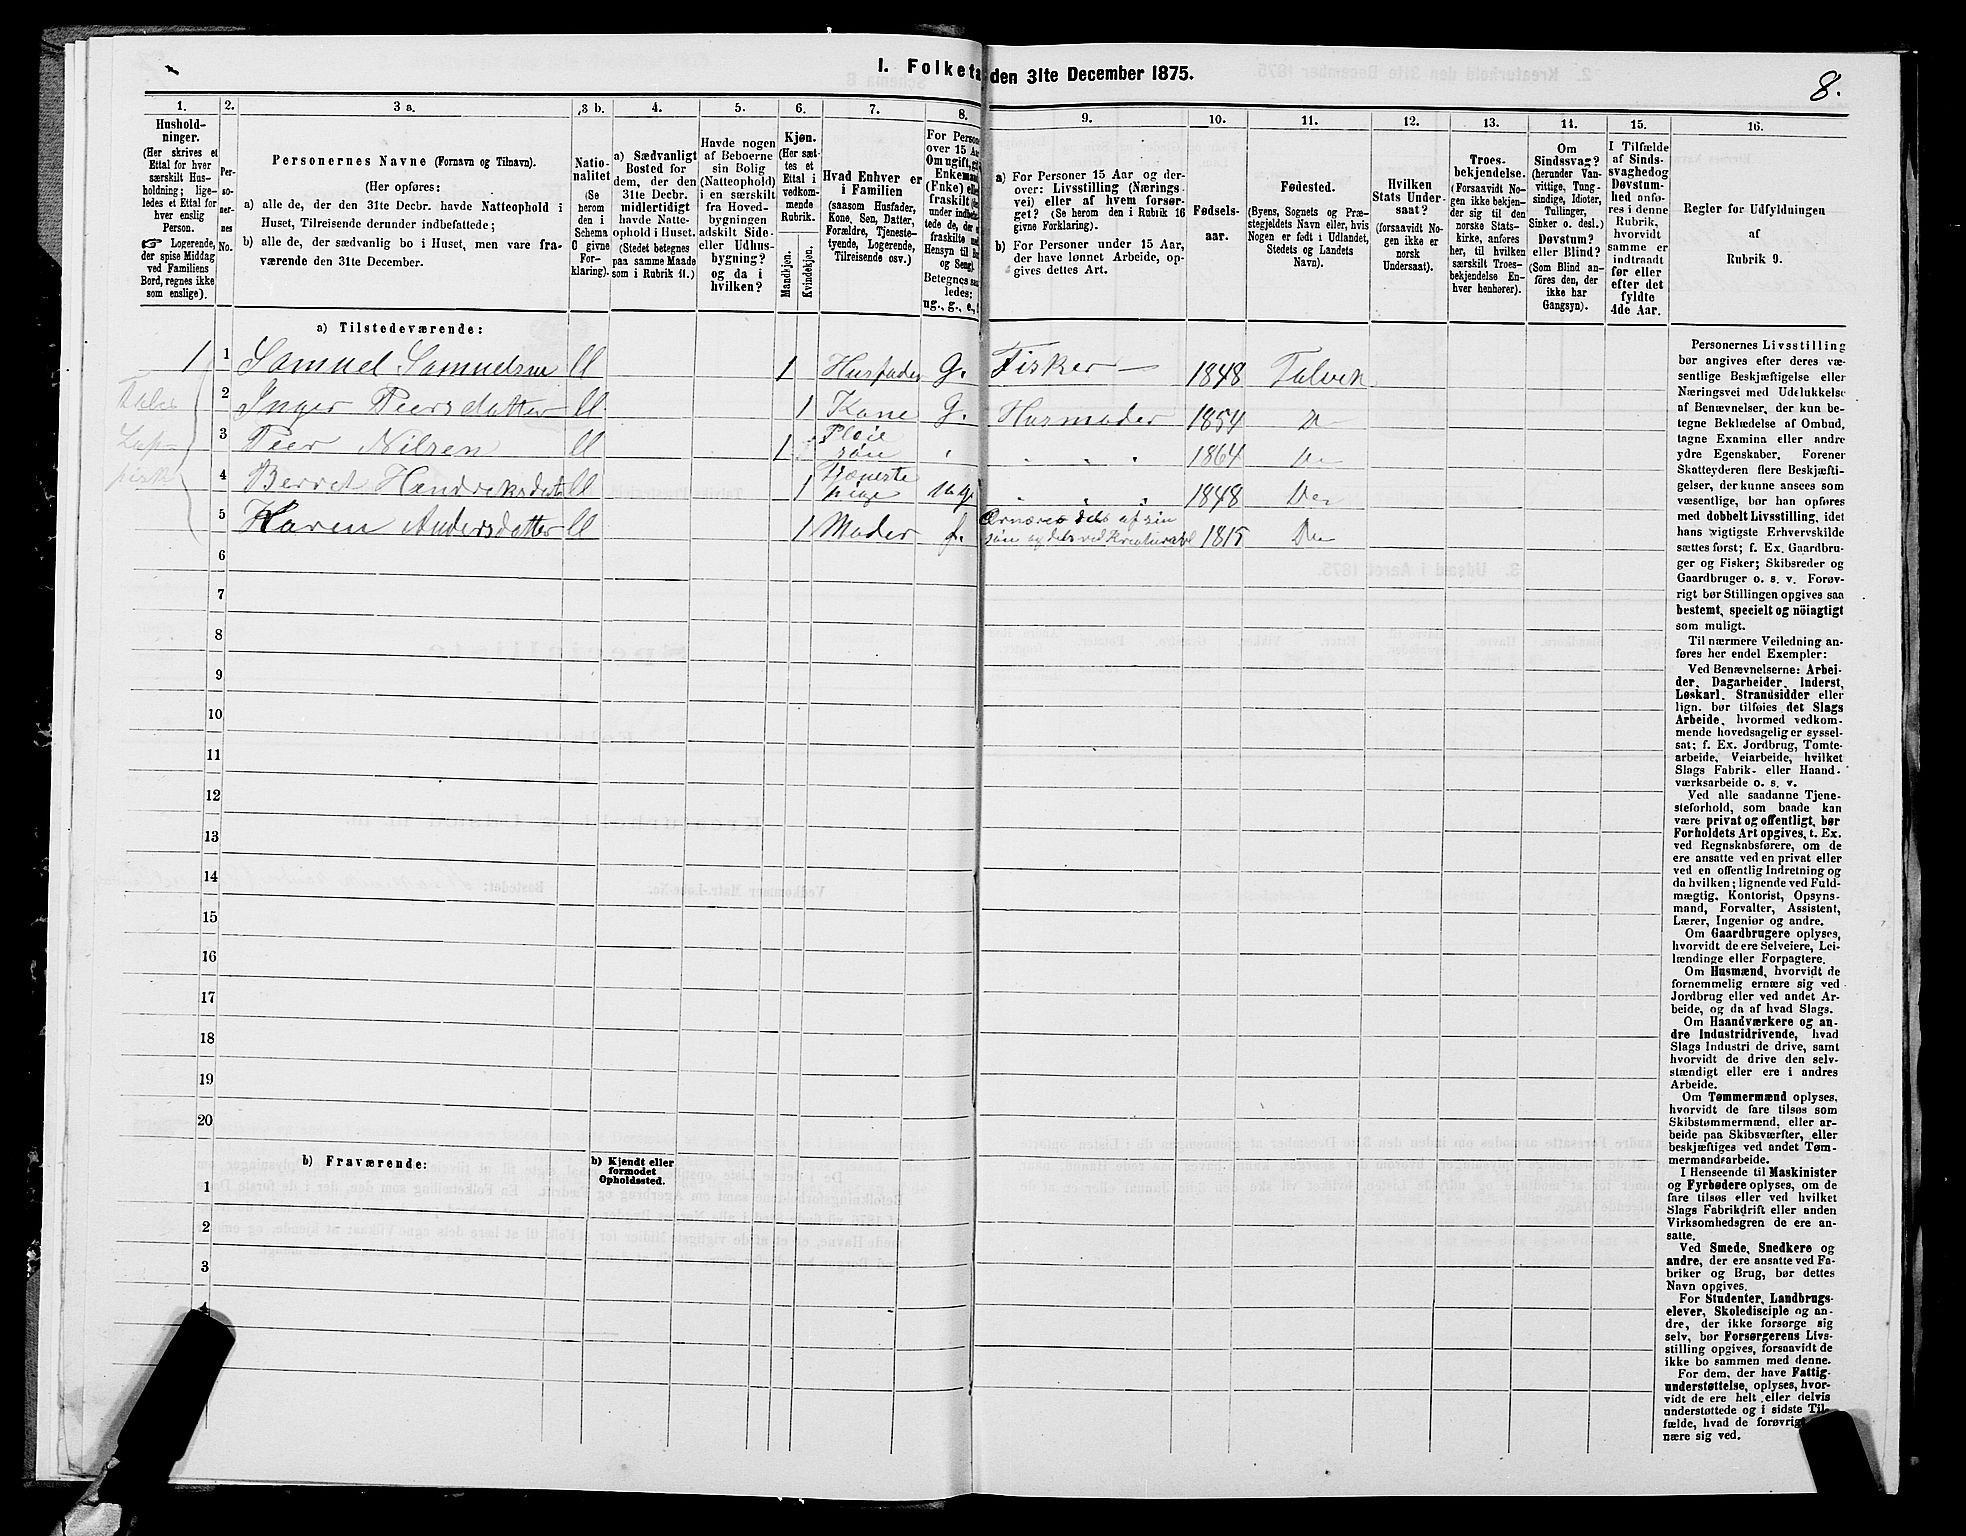 I. Folketa den 31te December 1875.
8.
1. 2. 3 a. 3 b. 4. 5. 6. 7. 8. 9. 10. 11. 12. 13. 14. 15. 16.
Hushold-
ninger.
(Her skrives et
Ettal for hver
særskilt Hus-
holdning; lige-
ledes et Ettal for
hver enslig
Person.
☞ Logerende,
der spise Middag
ved Familiens
Bord, regnes ikke
som enslige).
Per-
so-
ner-
nes
No.
Personernes Navne (Fornavn og Tilnavn).
(Her opføres:
a) alle de, der den 31te Decbr. havde Natteophold i
Huset, Tilreisende derunder indbefattede;
b) alle de, der sædvanlig bo i Huset, men vare fra-
værende den 31te December.
Natio-
nalitet
(Se
herom
den i
Schema
C givne
For-
klaring).
a) Sædvanligt
Bosted for
dem, der den
31te Decbr.
midlertidigt
havde Natte-
ophold i Huset.
(Stedet betegnes
paa samme Maade
som i Rubrik 11.)
Havde nogen
af Beboerne
sin Bolig
(Natteophold)
i en særskilt
fra Hoved-
bygningen
adskilt Side-
eller Udhus-
bygning?
og da i
hvilken?
Kjøn.
(Her sæt-
tes et
Ettal i
vedkom-
mende
Rubrik.
Mandkjøn.
Kvindekjøn.
Hvad Enhver er
i Familien
(saasom Husfader,
Kone, Søn, Datter,
Forældre, Tjeneste-
tyende, Logerende,
Tilreisende osv.)
For Person
over 15 Aar
Om ugift, gift
Enkemand
(Enke) eller
fraskilt
Betegnes saa
ledes:
ug., g., e., f
a) For Personer 15 Aar og der-
over: Livsstilling (Nærings-
vei) eller af hvem forsør-
get? (Se herom den i Rubrik 16
givne Forklaring).
b) For Personer under 15 Aar,
der have lønnet Arbeide, op-
gives dettes Art.
Fødsels-
aar.
Fødested.
(Byens, Sognets og Præ-
stegjeldets Navn eller, hvis
Nogen er født i Udlandet,
Stedets og Landets
Navn).
Hvilken
Stats Under-
saat?
(forsaavidt No-
gen ikke er
norsk
Undersaat).
Troes-
bekjendelse.
(Forsaavidt No-
gen ikke bekjen-
der sig til den
norske Stats-
kirke, anføres
her, til hvilken
særskilt Troes-
bekjendelse En-
hver henhører).
Om
Sindssvag?
(herunder Van-
vittige, Tung-
sindige, Idioter,
Tullinger,
Sinker o. desl.)
Døvstum?
eller Blind?
(Som Blind an-
føres den, der
ikke har
Gangsyn).
I Tilfælde
af Sinds-
svaghed og
Døvstum-
hed anfø-
res i denne
Rubrik,
hvorvidt
samme er
indtraadt
før eller
efter det
fyldte
4de Aar.
Regler for Udfyldningen
af
Rubrik 9.
a) Tilstedeværende:
1 1 Samuel Samuelsen U 1 Husfader G. Fisker — 1848 Talvik
2 Inger Peersdatter U 1 Kone G. Husmoder 1854 Do
3 Peer Nilsen U 1 Pleie søn 1864 Do
4 Berret Hendriksdatt U 1 Tjeneste pige ug. 1848 Do
5 Karen Andersdatter U 1 Moder f. Ernæres dels af sin
søn og dels ved Kreaturavl 1815 Do
6
7
8
9
10
11
12
13
14
15
16
17
18
19
20
b) Fraværende:
b) Kjendt eller
formodet
Opholdssted.
1
2
3
4
Personernes Livsstilling
bør angives efter deres væ-
sentlige Beskjæftigelse eller
Næringsvei med Udelukkelse
af Benævnelser, der kun be-
tegne Beklædelse af Ombud,
tagne Examina eller andre
ydre Egenskaber. Forener
Skatteyderen flere Beskjæfti-
gelser, der kunne ansees som
væsentlige, bør han opføres
med dobbelt Livsstilling, idet
hans vigtigste Erhvervskilde
sættes først; f. Ex. Gaardbru-
ger og Fisker; Skibsreder og
Gaardbruger o. s. v. Forøv-
rigt bør Stillingen opgives saa
bestemt, specielt og nöiagtigt
som muligt.
Til nærmere Veiledning an-
føres her endel Exempler:
Ved Benævnelserne: Arbei-
der, Dagarbeider, Inderst,
Løskarl, Strandsidder eller
lign. bør tilføies det Slags
Arbeide, hvormed vedkom-
mende hovedsagelig er syssel-
sat; f. Ex. Jordbrug, Tomte-
arbeide, Veiarbeide, hvilket
Slags Fabrik- eller Haand-
værksarbeide o. s. v.
Ved alle saadanne Tjene-
steforhold, som baade kan
være privat og offentligt, bør
Forholdets Art opgives, t. Ex.
ved Regnskabsførere, om de
ere ansatte ved en privat eller
ved en offentlig Indretning og
da hvilken; lignende ved Fuld-
mægtig, Kontorist, Opsyns-
mand, Forvalter, Assistent,
Lærer, Ingeniør og andre.
Om Gaardbrugere oplyses,
hvorvidt de ere Selveiere, Lei-
lændinge eller Forpagtere.
Om Husmænd, hvorvidt de
fornemmelig ernære sig ved
Jordbrug eller ved andet Ar-
beide, og da af hvad Slags.
Om Haandværkere og an-
dre Industridrivende, hvad
Slags Industri de drive, samt
hvorvidt de drive den selv-
stændigt eller ere i andres
Arbeide.
Om Tømmermænd oplyses,
hvorvidt de fare tilsøs som
Skibstømmermænd, eller ar-
beide paa Skibsværfter, eller
beskjæftiges ved andet Tøm-
mermandsarbeide.
I Henseende til Maskinister
og Fyrbødere oplyses, om de
fare tilsøs eller ved hvilket
Slags Fabrikdrift eller anden
Virksomhedsgren de ere an-
satte.
Ved Smede, Snedkere og
andre, der ere ansatte ved Fa-
briker og Brug, bør dettes
Navn opgives.
For Studenter, Landbrugs-
elever, Skoledisciple og an-
dre, der ikke forsørge sig
selv, bør Forsørgerens Livs-
stilling opgives, forsaavidt de
ikke bo sammen med denne.
For dem, der have Fattig-
understøttelse, oplyses, hvor-
vidt de ere helt eller delvis
understøttede og i sidste Til-
fælde, hvad de forøvrigt
nære sig ved.